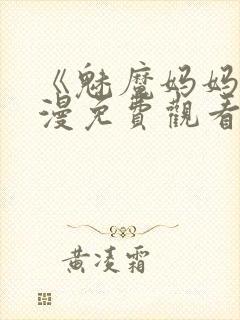 《魅魔妈妈
漫免費觀看
黄凌霜